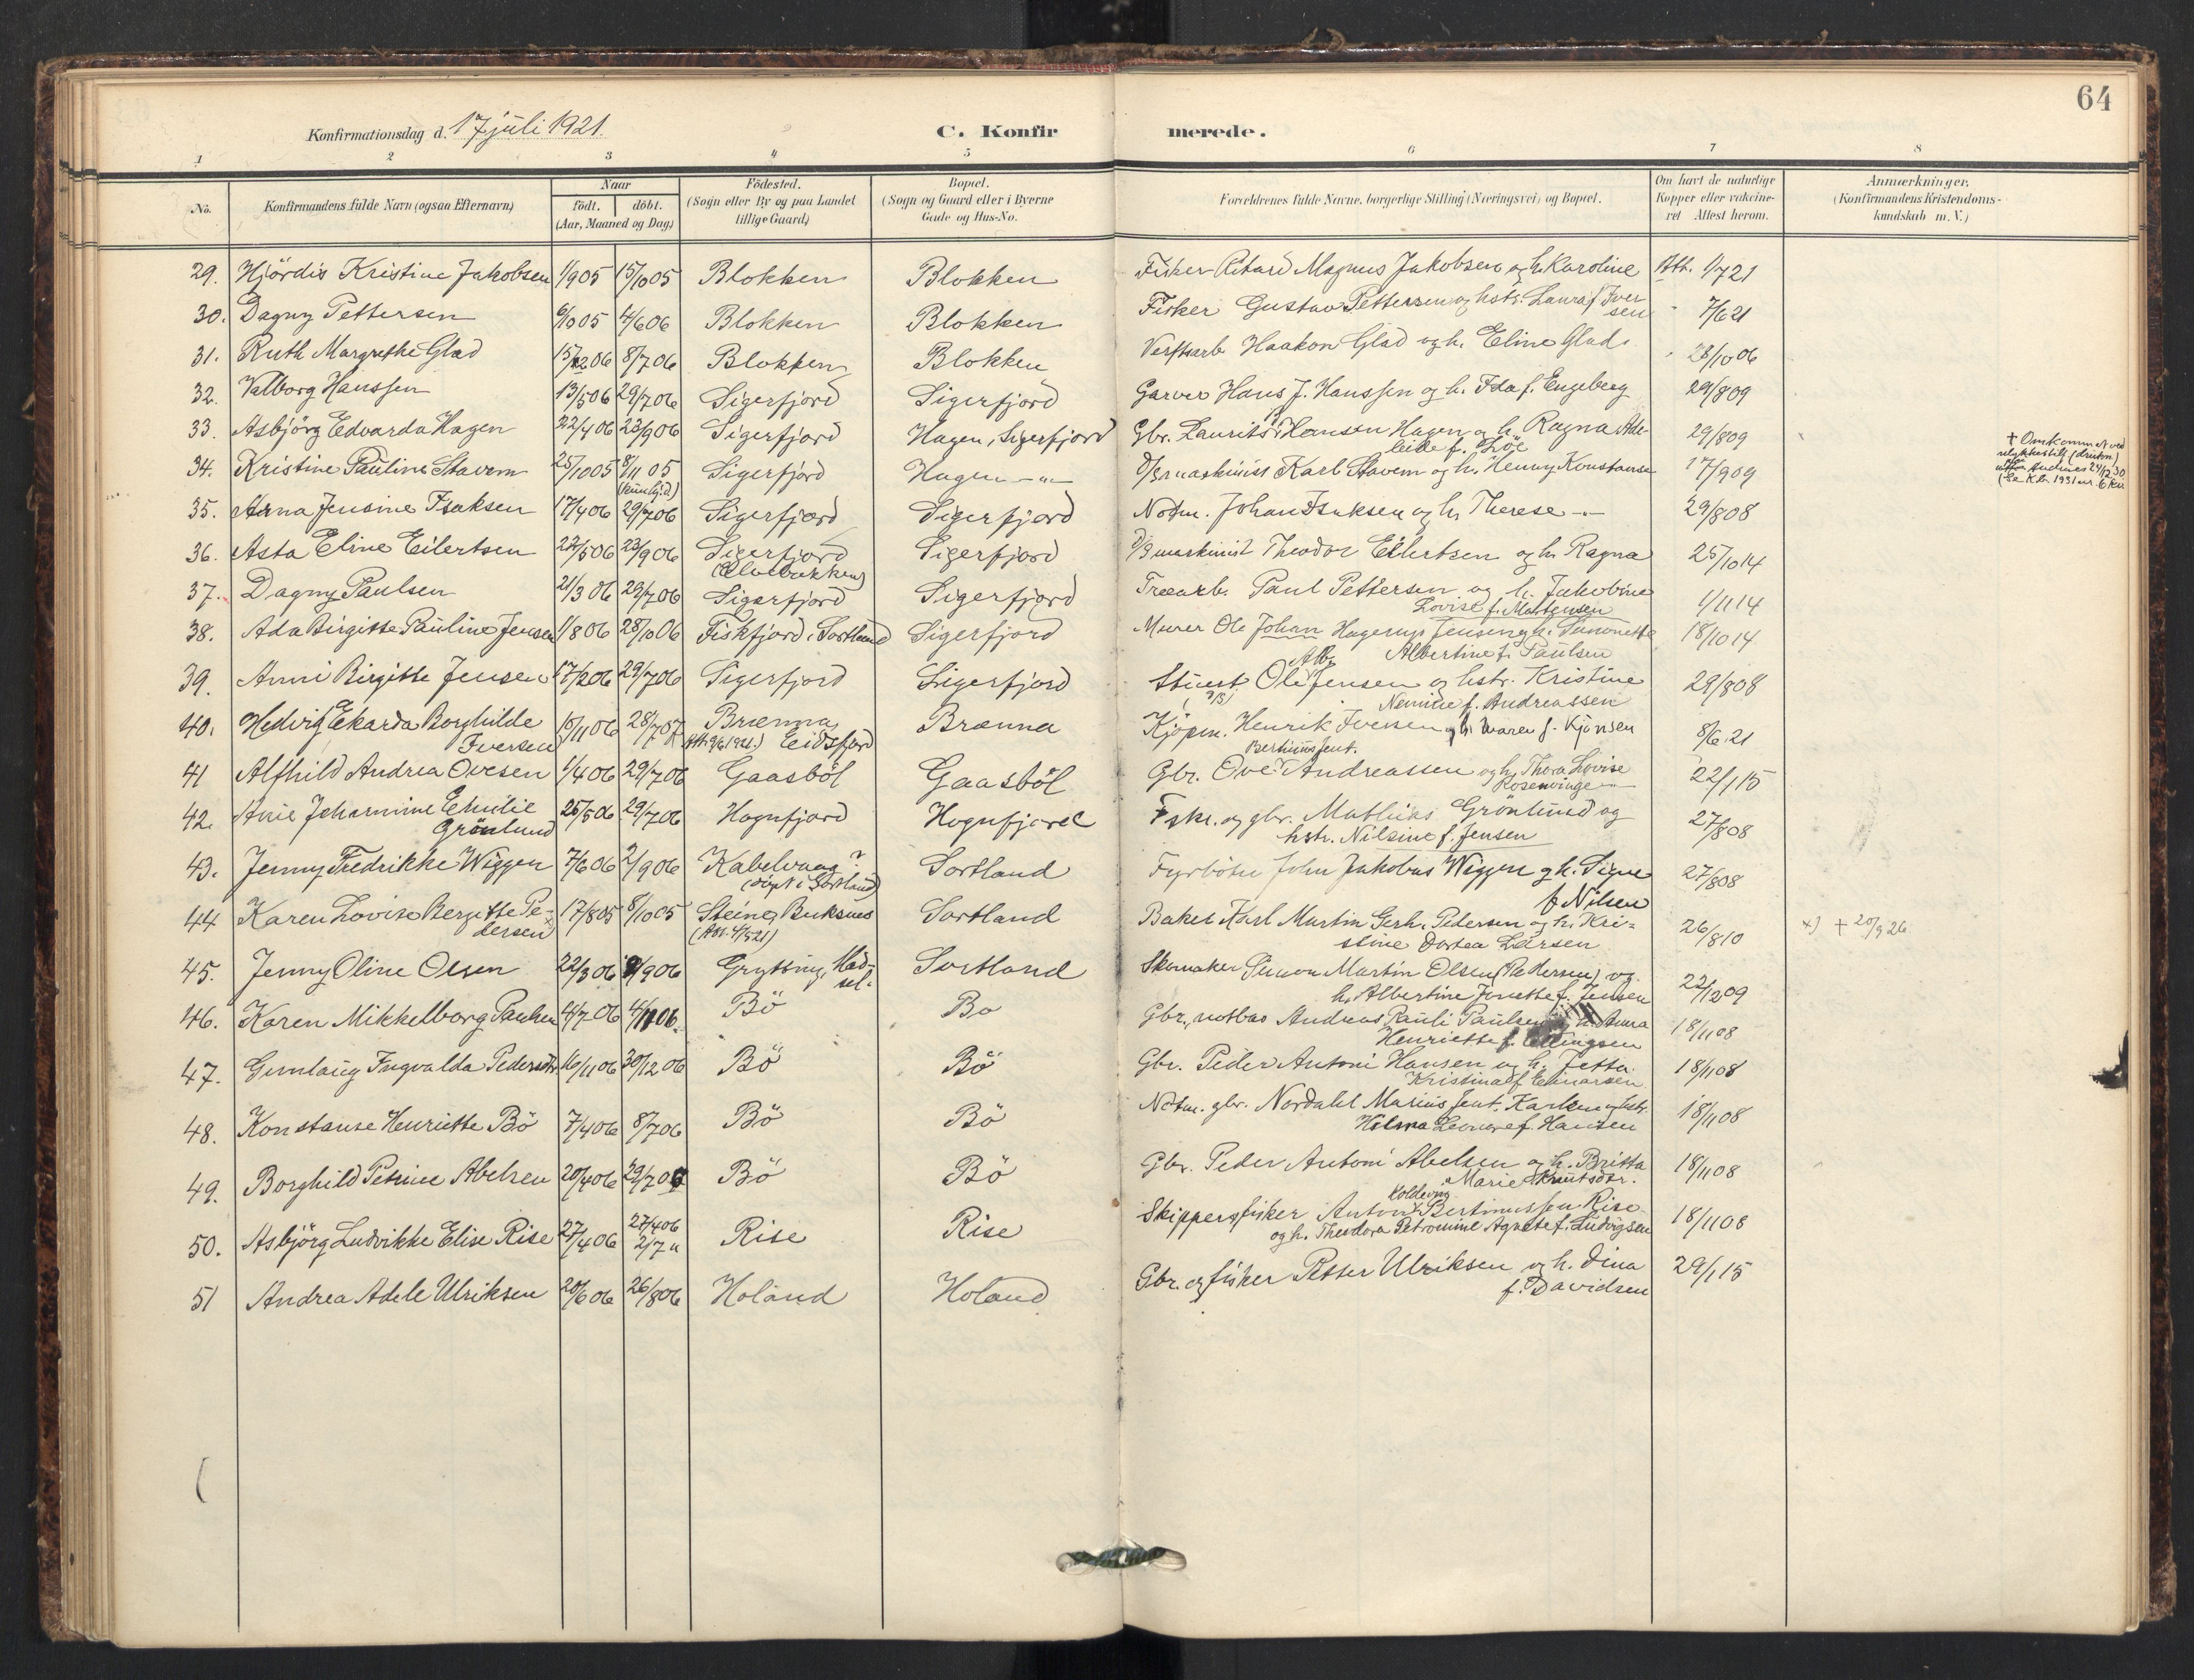 64
Konfirmationsdag d. 17 juli 1921.
C. Konfirmerede.
1 2 3 4 5 6 7 8
No.
Konfirmandens fulde Navn (ogsaa Efternavn)
Naar
födt. döbt.
(Aar, Maaned og Dag)
Födested.
(Sogn eller By og paa Landet
tillige Gaard)
Bopæl.
(Sogn og Gaard eller i Byerne
Gade og Hus-No.
Forældrenes fulde Navne, borgerlige Stilling (Næringsvei) og Bopæl.
Om havt de naturlige
Kopper eller vakcine-
ret Attest herom.
Anmærkninger.
(Konfirmandens Kristendoms-
kundskab m. V.)
29. Hjördis Kristine Jakobsen 1/9 05 15/10 05 Blokken Blokken Fisker Rikard Magnus Jakobsen og h. Karoline Att. 1/7 21
30. Dagny Pettersen 6/10 05 4/6 06 Blokken Blokken Fisker Gustav Pettersen og hstr. Laura f. Iver-
sen " 7/6 21
31. Ruth Margrethe Glad 06 8/7 06 Blokken Blokken Verftsarb. Haakon Glad og h. Eline Glad 28/10 06
32. Valborg Hanssen 13/5 06 29/7 06 Sigerfjord Sigerfjord Garver Hans J. Hanssen og h. Ida f. Engeberg 29/8 09
33. Asbjörg Edvarda Hagen 22/4 06 23/9 06 Sigerfjord Hagen, Sigerfjord Gbr. Laurits Hansen Hagen og h. Ragna Ade-
leide f. 29/8 09
34. Kristine Pauline Stavem 25/10 05 8/11 05 Sigerfjord Hagen -"- D/S maskinist Karl Stavem og h. Henny Konstanse 17/9 09
(kun hj.d)
† Omkommet ved
ulykkestilf. (drukn.)
Andenes 24/12 30
35. Anna Jensine Isaksen 17/4 06 29/7 06 Sigerfjord Sigerfjord Notm. Johan Isaksen og h. Therese -"- 29/8 08
36. Asta Eline Eilertsen 22/5 06 23/9 06 Sigerfjord Sigerfjord D/S maskinist Theodor Eilertsen og h. Ragna 25/10 14
37. Dagny Paulsen 21/3 06 29/7 06 Sigerfjord Sigerfjord Træarb. Paul Pettersen og h. Jakobine
Lovise f. Mortensen 1/11 14
38. Ada Birgitte Pauline Jensen 1/8 06 28/10 06 Fiskfjord i Sortland Sigerfjord Murer Ole Johan Hagerup Jensen og h. Simonette
Albertine f. Paulsen 18/10 14
39. Anni Birgitte Jensen 17/2 06 29/7 06 Sigerfjord Sigerfjord Stuert Ole Alb. Jensen og hstr. Kristine
f. Andreassen 29/8 08
40. Hedvig Ekarda Borghilde
Iversen 10/11 06 28/7 07 Brænna Brænna Kjöpm. Henrik Iversen og h. Maren f. Kjönsen 8/6 21
Eidsfjord
41 Alfhild Andrea Ovesen 1/4 06 29/7 06 Gaasböl Gaasböl Gbr. Ove Bertiniusjent. Andreassen og h. Thora Lovise
Rosenvinge 22/1 15
42. Anie Johannine Emilie
Grönlund 25/5 06 29/7 06 Hognfjord Hognfjord Fskr. og gbr. Mathias Grönlund og
hstr. Nilsine f. Jensen 27/8 08
43. Jenny Fredrikke Wiggen 7/6 06 2/9 06 Kabelvaag?
(döpt i Sortland) Sortland Fyrböter John Jakobus Wiggen og h. Signe
f. Nilsen 27/8 08
44 Karen Lovise Bergitte Pe-
dersen 17/8 05 8/10 05 Steine, Buksnes
(Att. 4/5 21) Sortland Baker Karl Martin Gerh. Pedersen og h. Kri-
stine Dortea Larsen 26/8 10 ×) † 20/9 26
45. Jenny Oline Olsen 22/3 06 9/9 06 Grytting, Had-
sel. Sortland Skomaker Simon Martin Olsen (Pedersen) og
h. Albertine Jonette f. Jensen 22/12 09
46. Karen Mikkelborg Paulsen 4/7 06 4/11 06. Bö Bö Gbr., notbas Andreas Pauli Paulsen og h. Anna
Henriette f. Ellingsen 18/11 08
47. Gunlaug Ingvalda Pedersdtr. 10/11 06 30/12 06 Bö Bö Gbr. Peder Antoni Hansen og h. Jetta
Kristina f. Einarsen 18/11 08
48. Konstanse Henriette Bö 7/4 06 8/7 06 Bö Bö Notm. gbr. Nordahl Marius Jent. Karlsen og hstr.
Hilma Leonore f. Hansen 18/11 08
49. Borghild Petrine Abelsen 20/4 06 29/7 06 Bö Bö Gbr. Peder Antoni Abelsen og h. Britta
Marie Knutsdtr. 18/11 08
50. Asbjörg Ludvikke Elise Rise 27/4 06 27/4 06
2/7 " Rise Rise Skipper og fisker Anton Koldevig Bertinussen Rise
og h. Theodora Petromine Agnete f. Ludvigsen 18/11 08
51 Andrea Adele Ulriksen 20/6 06 26/8 06 Holand Holand Gbr. og fisker Petter Ulriksen og h. Dina
f. Davidsen 29/1 15